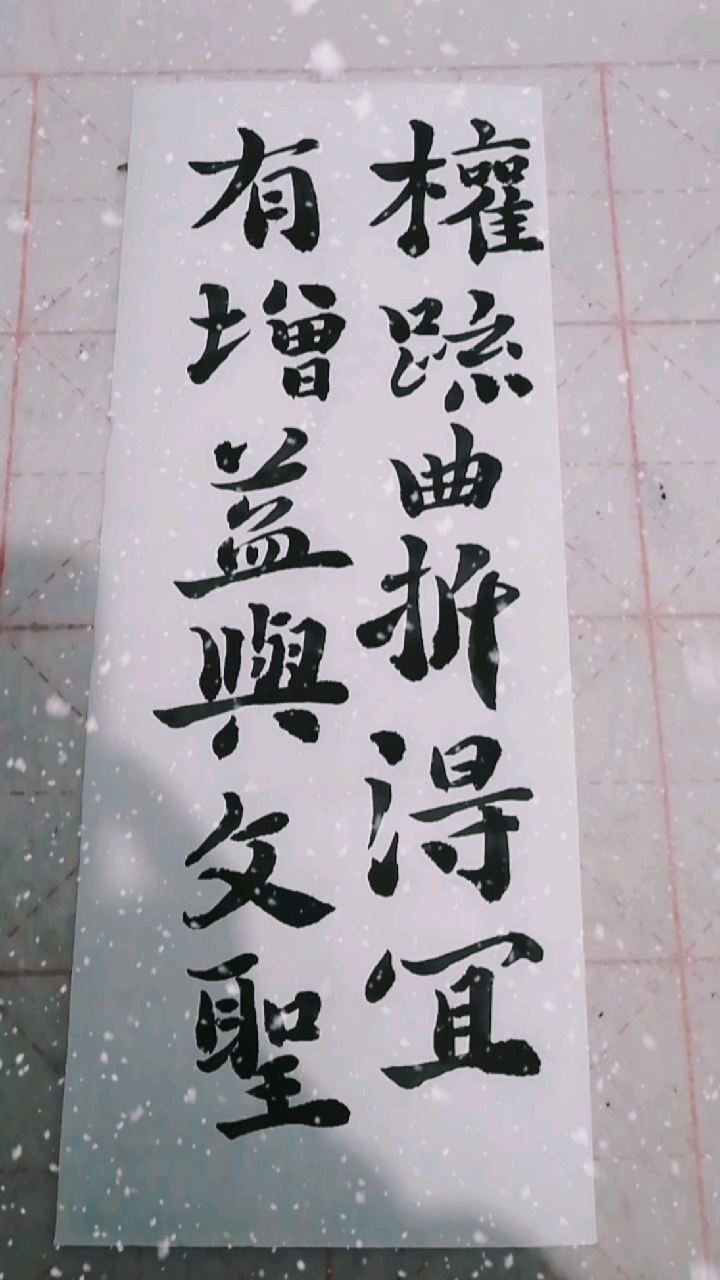 權疏曲折得宜
有增益與文聖